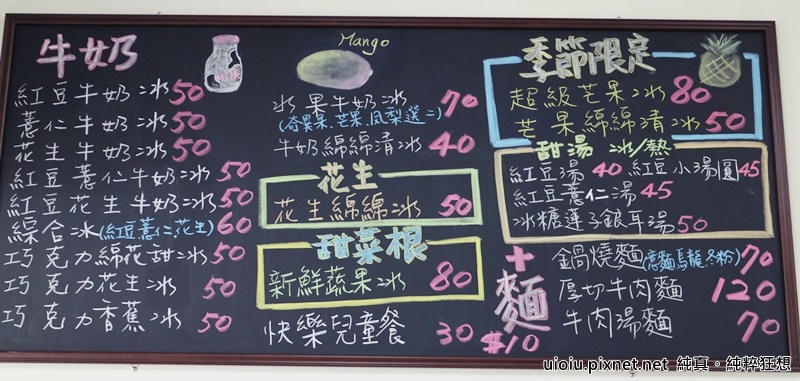 牛奶
Milk
紅豆牛奶冰50
薏仁牛奶冰50
花生牛奶冰50
紅豆薏仁牛奶冰50
紅豆花生牛奶冰50
綜合冰(紅豆薏仁花生)60
巧克力綿花甜冰50
巧克力花生冰50
巧克力香蕉冰50
Mango
水果牛奶冰70
(奇異果.芒果.鳳梨選二)
牛奶綿綿清冰40
花生
花生綿綿冰50
甜菜根
新鮮蔬果冰80
快樂兒童餐30
季節限定
超級芒果冰80
芒果綿綿清冰50
甜湯 冰/熱
紅豆湯40 紅豆小湯圓45
紅豆薏仁湯45
冰糖蓮子銀耳湯50
+麵$10
鍋燒麵(意麵烏龍冬粉)70
厚切牛肉麵120
牛肉湯麵70
uioiu.pixnet.net 純真。純粹狂想